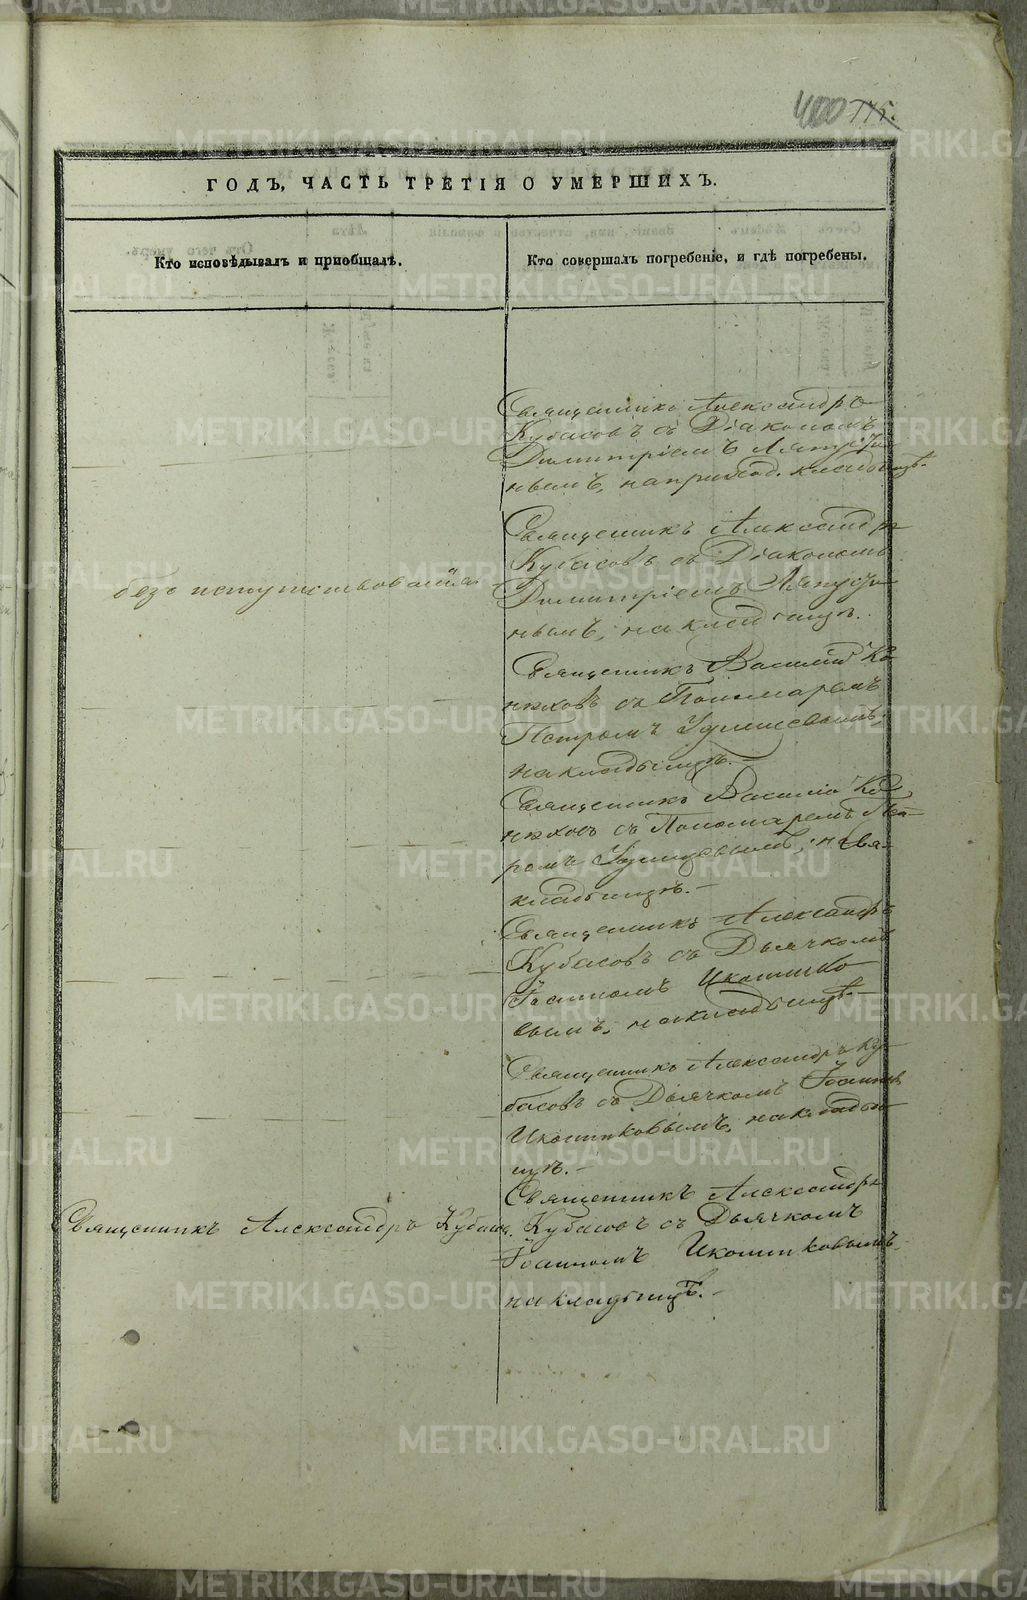 400 175.
ГОДЪ, ЧАСТЬ ТРЕТІЯ О УМЕРШИХЪ.
Кто исповѣдывалъ и пріобщалъ.
Кто совершалъ погребеніе, и гдѣ погребены.
Священникъ Александръ
Кубасовъ съ Діакономъ
Димитріемъ
нымъ, на приход. кладбищѣ.
Священникъ Александръ
Кубасовъ съ Діакономъ
безъ напутствованія
Димитріемъ
нымъ, на кладбищѣ.
Священникъ Василій Ко
нюховъ съ Пономаремъ
Петромъ
на кладбищѣ.
Священникъ Василій Ко
нюховъ съ Пономаремъ Пет
ромъ
кладбищѣ.-
Священникъ Александръ
Кубасовъ съ Дьячкомъ
Іоанномъ Иконнико
вымъ, на кладбищѣ.-
Священникъ Александръ Ку
басовъ съ Дьячкомъ Іоанном
Иконниковымъ, на кладби
щѣ.-
Священникъ Александръ
Священникъ Александръ Кубасов. Кубасовъ съ Дьячкомъ
Іоанномъ Иконниковымъ
на кладбищѣ.-
METRIKI.GASO-URAL.RU